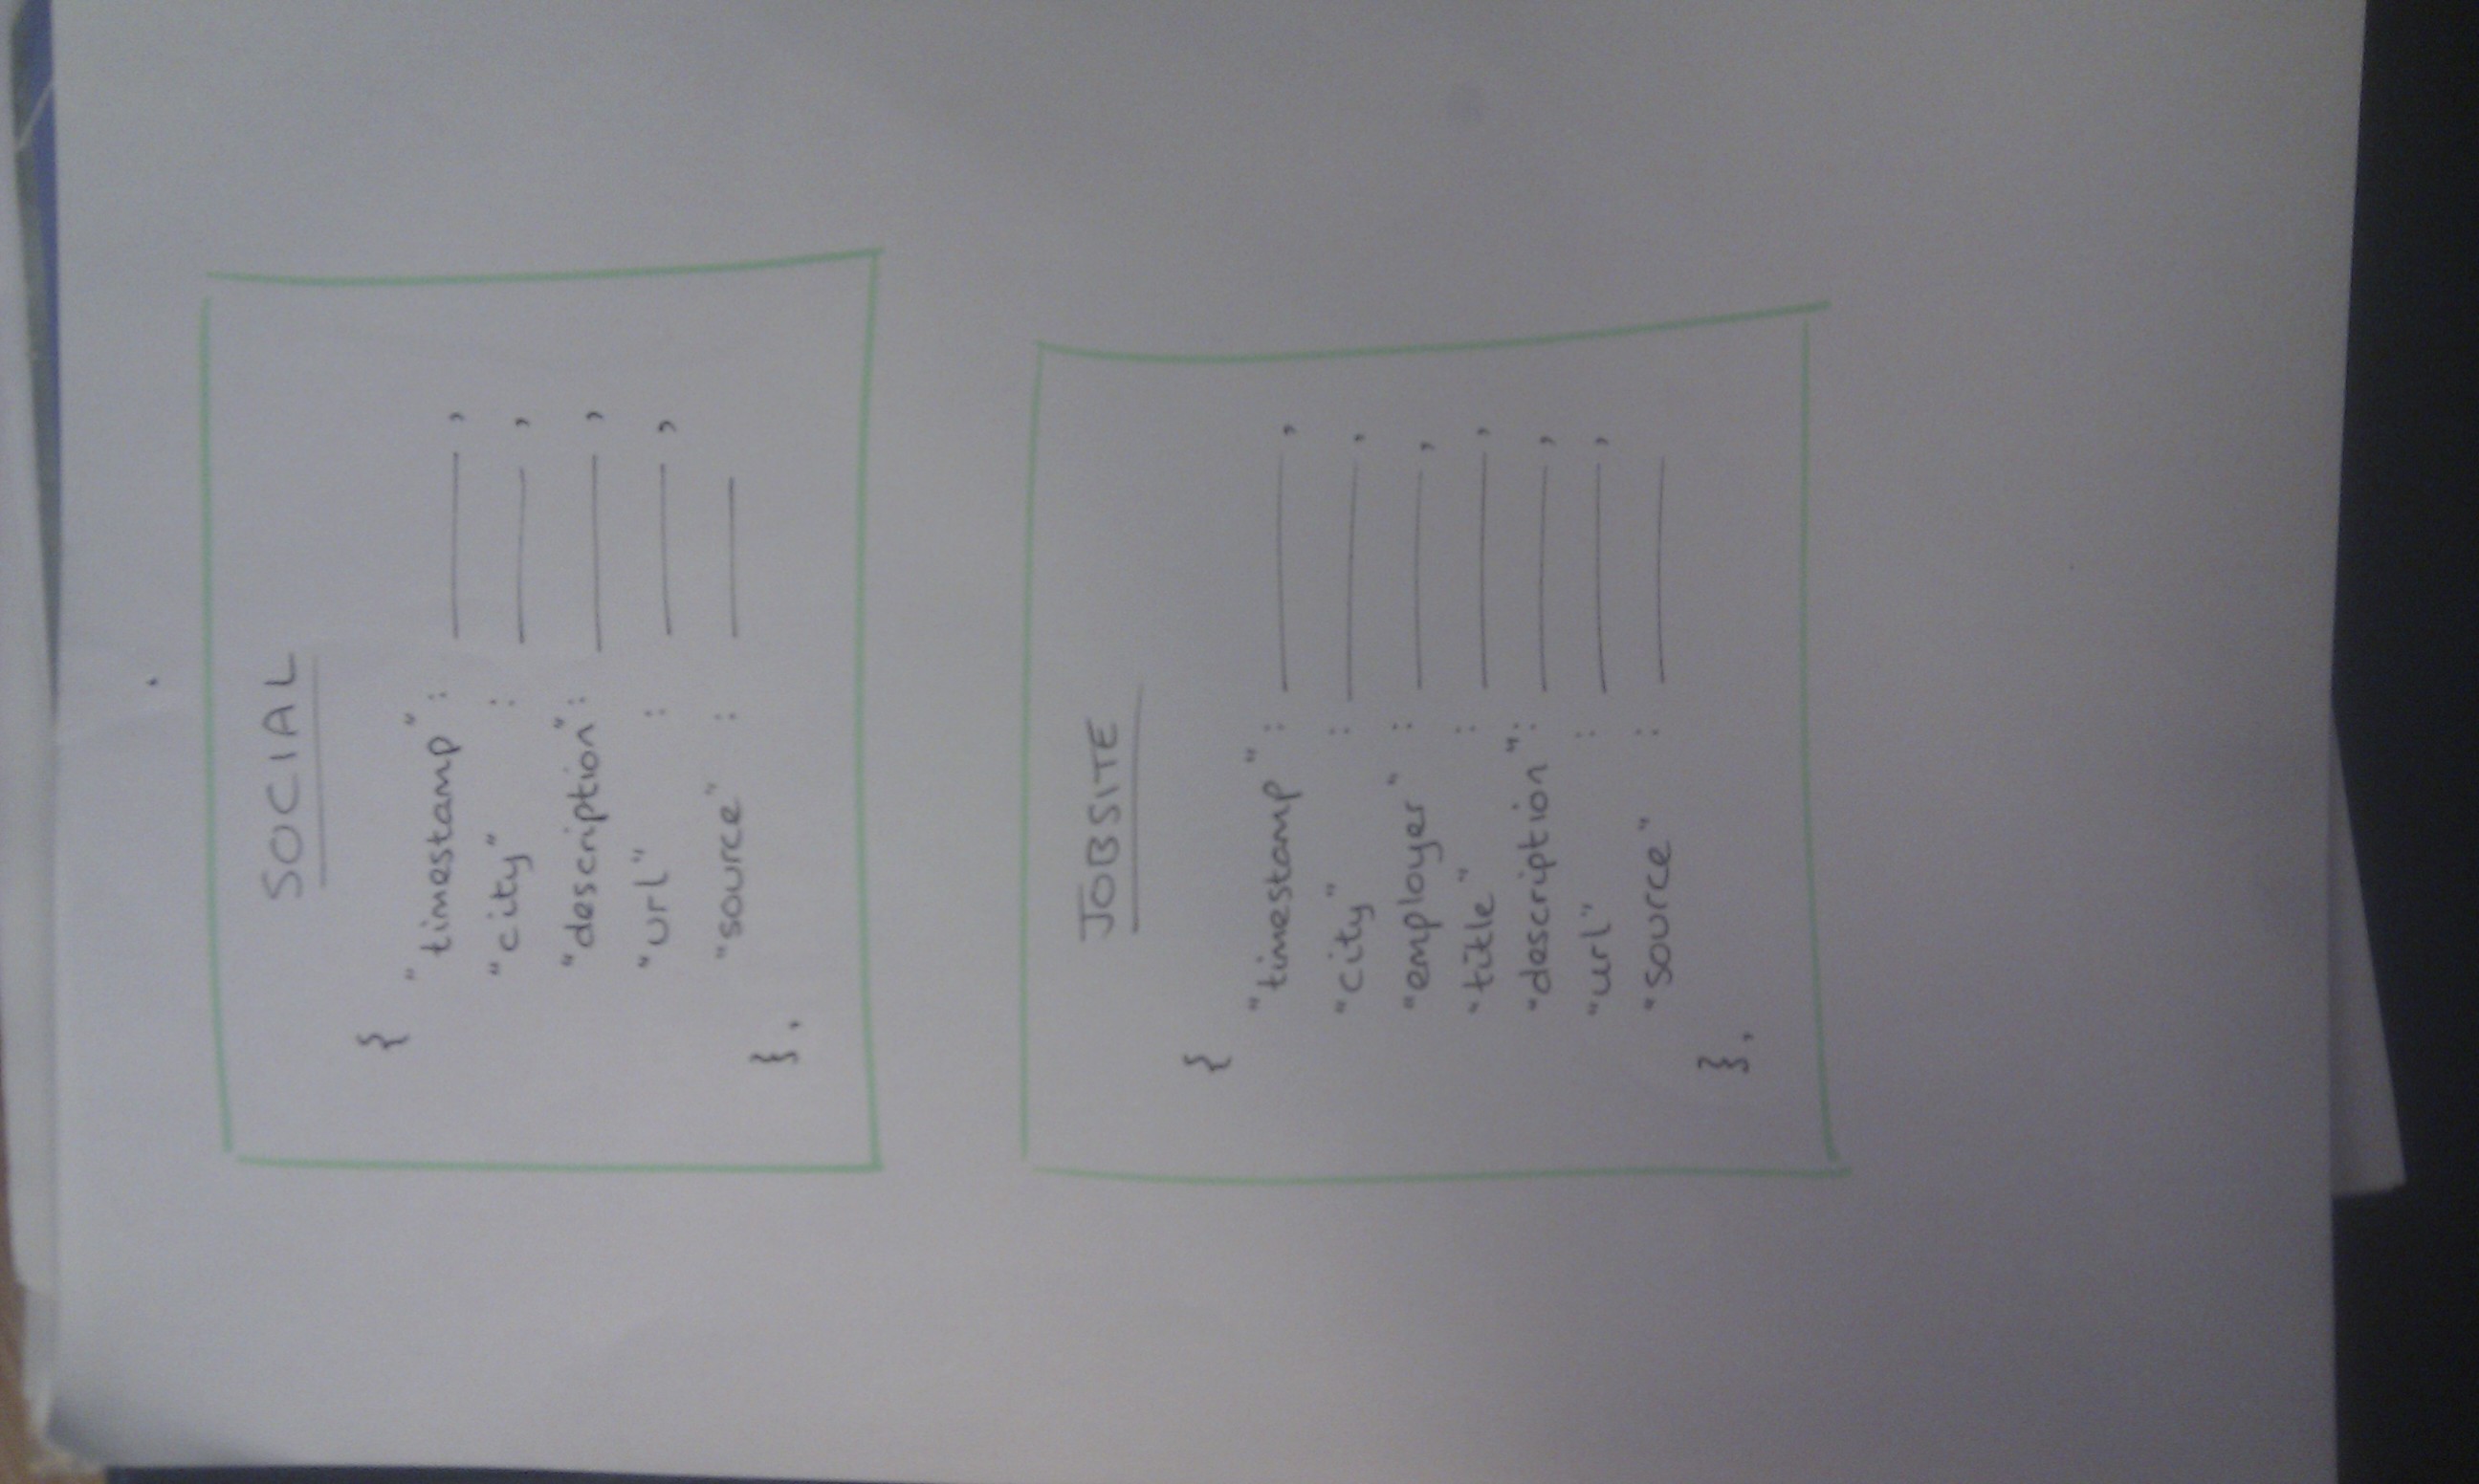 SOCIAL
{
"timestamp" : ______ ,
"city" : ______ ,
"description" : ______ ,
"url" : ______ ,
"source" : ______
},
JOBSITE
{
"timestamp" : ______ ,
"city" : ______ ,
"employer" : ______ ,
"title" : ______ ,
"description" : ______ ,
"url" : ______ ,
"source" : ______
},